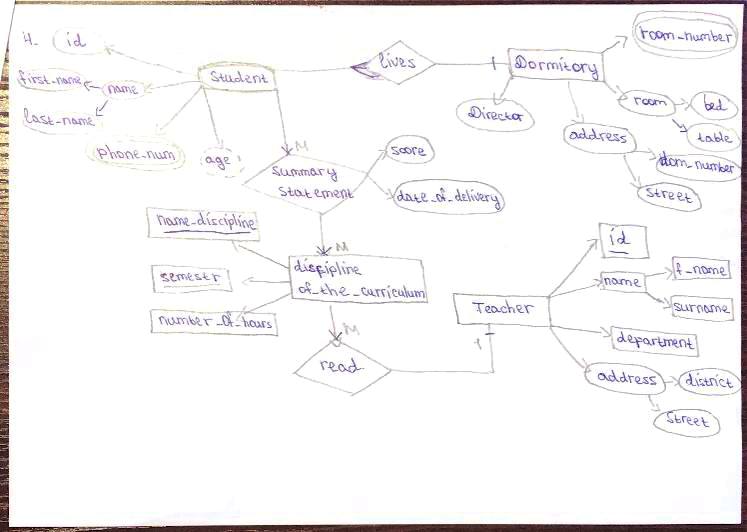 4.
id
first_name
name
last_name
phone_num
age
Student
lives
1
Dormitory
room_number
Director
room
bed
table
address
dom_number
street
M
Summary
Statement
score
date_of_delivery
M
name_discipline
semestr
number_of_hours
discipline
of_the_curriculum
M
read
1
Teacher
id
name
f_name
surname
department
address
district
street